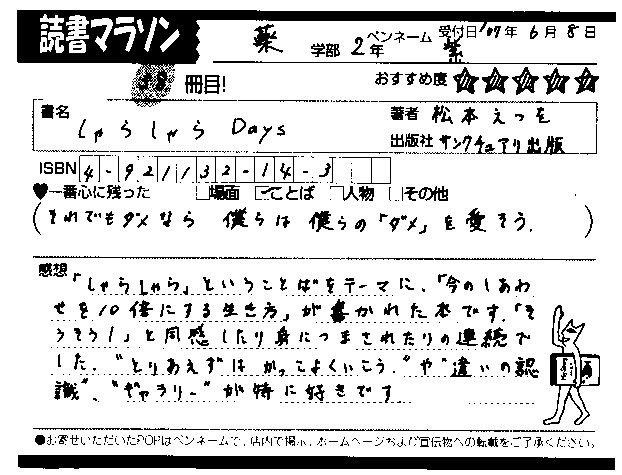 読書マラソン 薬 学部 2年 ペンネーム 紫 受付日'07年 6月 8日
38 冊目! おすすめ度 ★★★★★
書名 しゃらしゃら Days 著者 松本えつを
出版社 サンクチュアリ出版
ISBN 4-921132-14-3
♥一番心に残った □場面 ☑ことば □人物 □その他
(それでもダメなら 僕らは 僕らの「ダメ」を愛そう.)
感想 「しゃらしゃら」ということばをテーマに、「今のしあわ
せを10倍にする生き方」が書かれた本です.「そ
うそう!」と同感したり身につまされたりの連続で
した. "とりあえずはかっこよくいこう."や"違いの認
識"、"ギャラリー"が特に好きです
●お寄せいただいたPOPはペンネームで、店内で掲示、ホームページおよび宣伝物への転載をご了承ください。